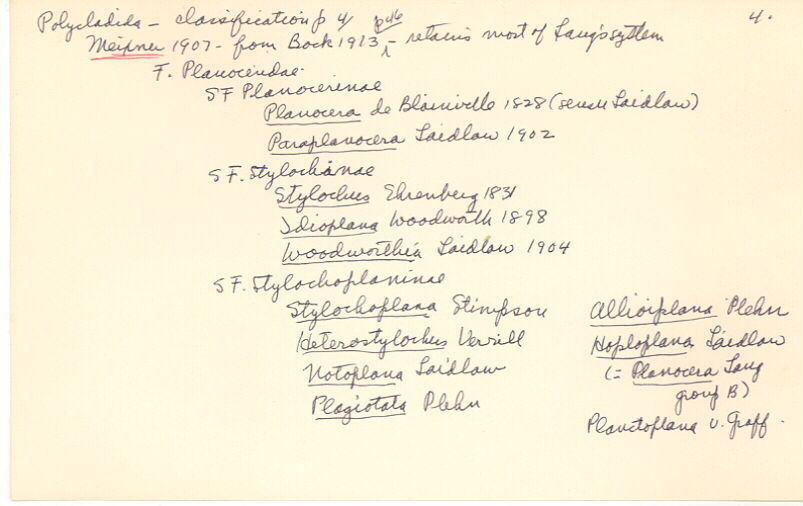 Polycladida - classification p 4
4.
Meixner 1907 - from Bock 1913, p46 - retains most of Lang's system
F. Planoceridae
SF Planocerinae
Planocera de Blainville 1828 (sensu Laidlaw)
Paraplanocera Laidlaw 1902
SF. Stylochinae
Stylochus Ehrenberg 1831
Idioplana Woodworth 1898
Woodworthia Laidlaw 1904
SF. Stylochoplaninae
Stylochoplana Stimpson
Heterostylochus Verrill
Notoplana Laidlaw
Plagiotata Plehn
Allioiplana Plehn
Hoploplana Laidlaw
(= Planocera Lang
group B)
Planctoplana v. Graff.